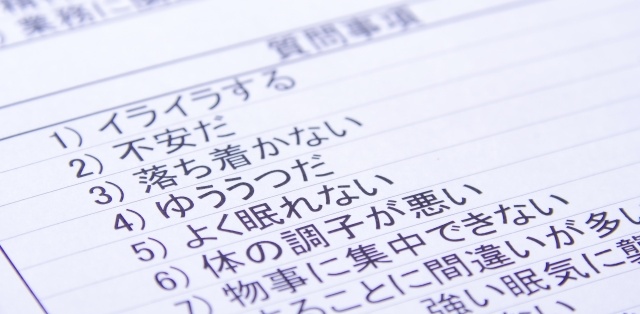 業務に
質問事項
1) イライラする
2) 不安だ
3) 落ち着かない
4) ゆううつだ
5) よく眠れない
6) 体の調子が悪い
7) 物事に集中できない
することに間違いが多い
強い眠気に襲
ない